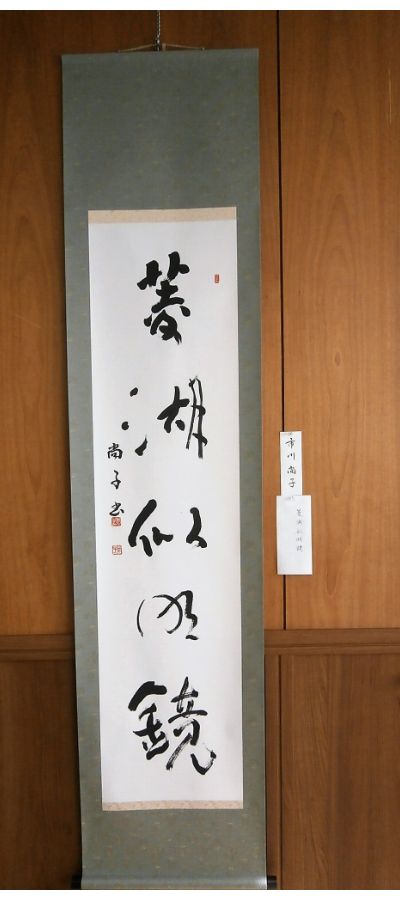 菱湖似明鏡
尚子書
市川尚子
菱湖似明鏡